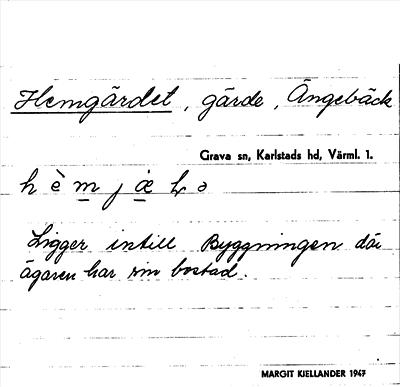 Hemgärdet, gärde, Ängebäck
Grava sn, Karlstads hd, Värml. 1.
Ligger intill Byggningen där
ägaren har sin bostad.
MARGIT KJELLANDER 1947